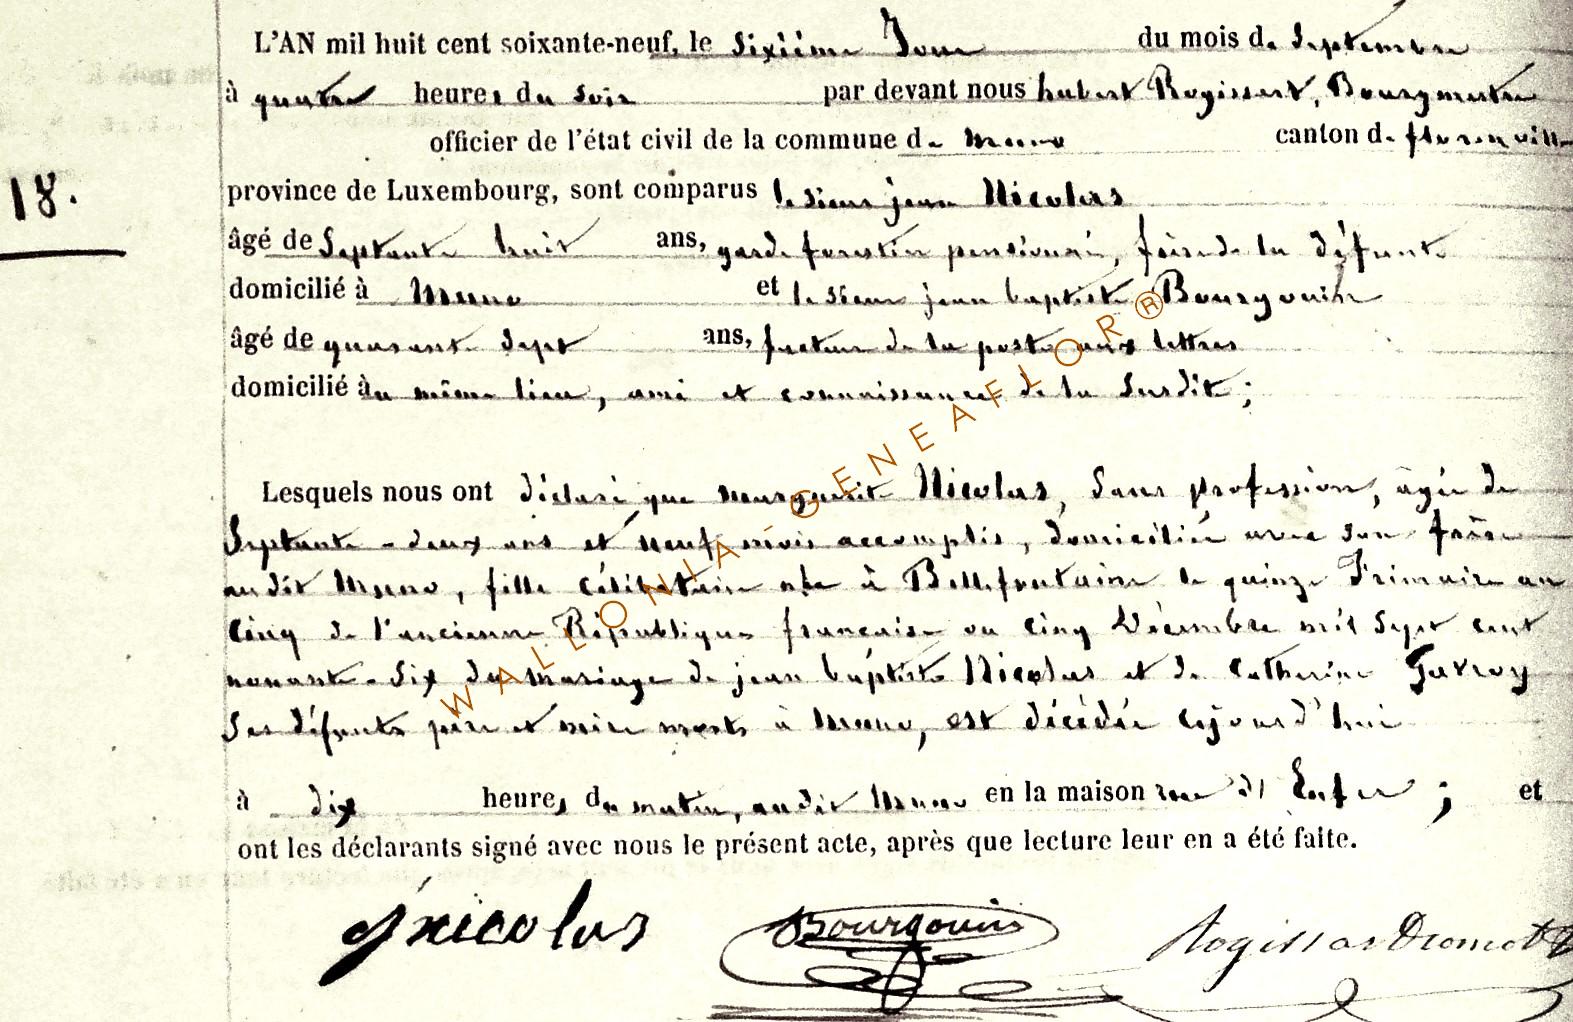 L'AN mil huit cent soixante-neuf, le Sixième Jour du mois de Septembre
à quatre heures du Soir par devant nous hubert Rogissart, Bourgmestre
officier de l'état civil de la commune de Muno canton de florenville
18.
province de Luxembourg, sont comparus le sieur jean Nicolas
âgé de Septante huit ans, garde forestier pensionné, frère de la défunte
domicilié à Muno et le sieur jean baptiste Bourgouin
âgé de quarante Sept ans, facteur de la poste aux lettres
domicilié au même lieu, ami et connaissance de la Susdite;
Lesquels nous ont déclaré que marguerite Nicolas, Sans profession, âgée de
Septante-deux ans et neuf mois accomplis, domiciliée avec son frère
audit Muno, fille célibataire née à Bellefontaine le quinze Frimaire an
Cinq de l'ancienne République française ou cinq Décembre mil Sept cent
nonante-Six du mariage de jean baptiste Nicolas et de Catherine Gavroy
Ses défunts père et mère morts à Muno, est décédée cejourd'hui
à dix heures du matin, audit Muno en la maison rue d'Enfer; et
ont les déclarants signé avec nous le présent acte, après que lecture leur en a été faite.
JNicolas Bourgouin Rogissart
WALLONIA-GENEAFLOR®